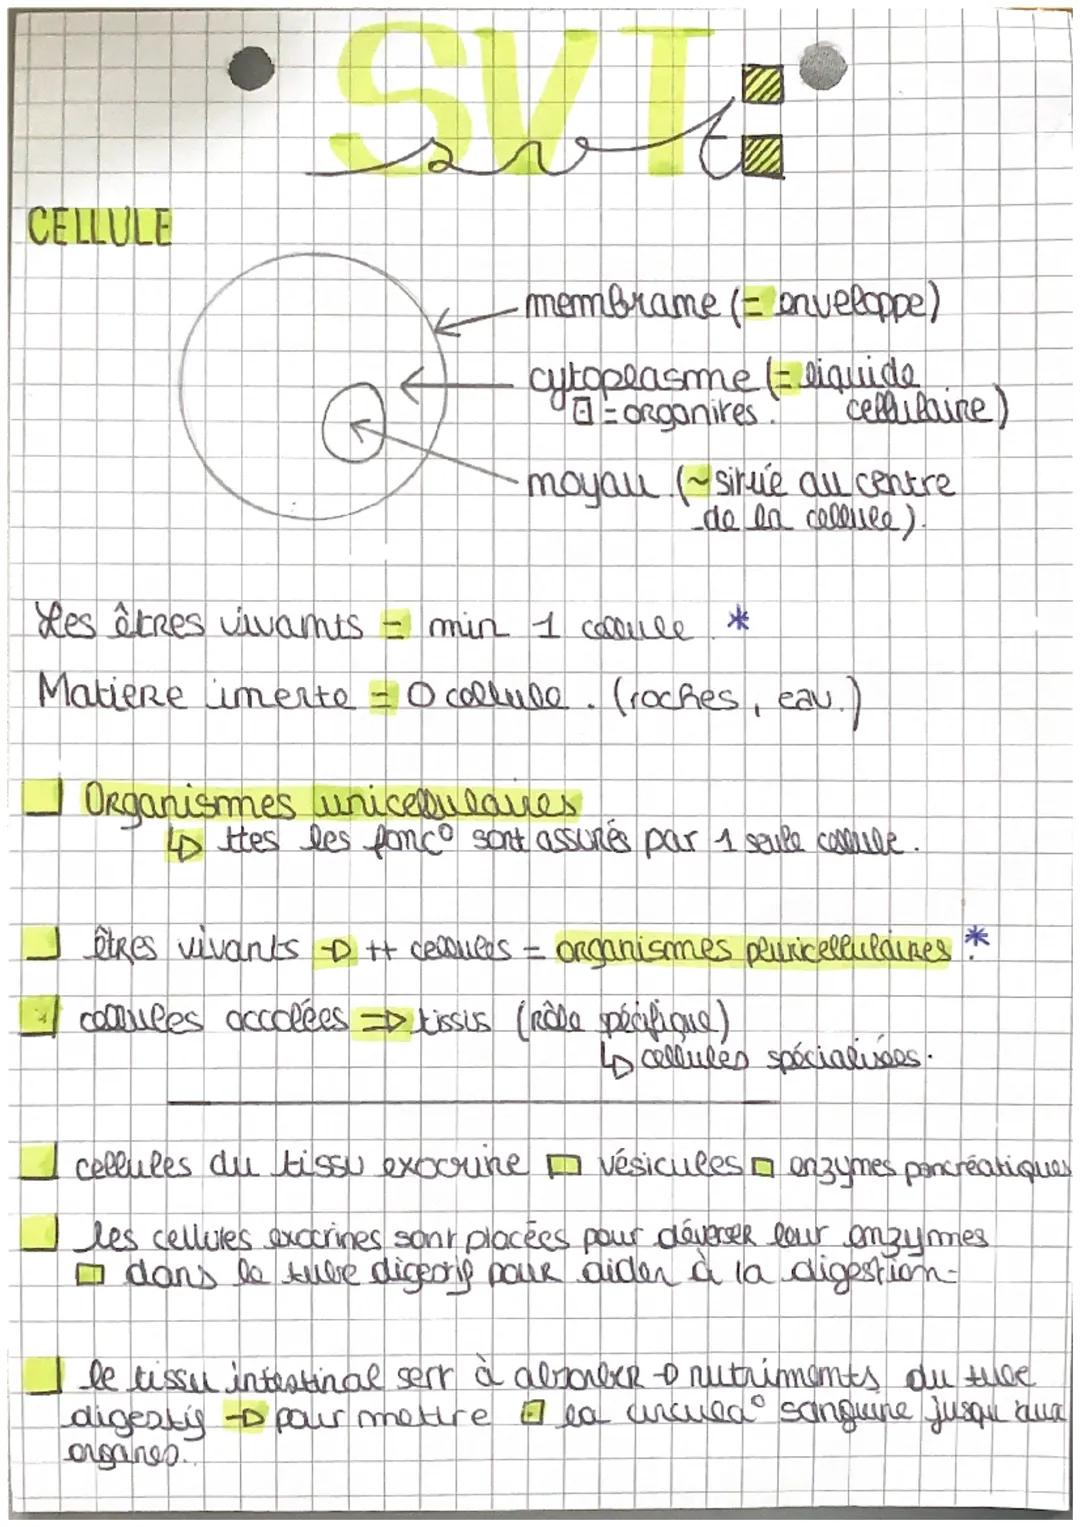 SVT
svt
CELLULE
membrane (= enveloppe)
cytoplasme (= liquide
cellulaire)
⊡ = organites.
noyau (~ située au centre
de la cellule).
Les êtres vivants = min 1 cellule. *
Matière inerte = 0 cellule. (roches, eau.)
Organismes unicellulaires
↳ ttes les fonc° sont assurés par 1 seule cellule.
êtres vivants → ++ cellules = organismes pluricellulaires. *
cellules accolées ⇒ tissus (rôle spécifique)
↳ cellules spécialisées.
cellules du tissu exocrine □ vésicules □ enzymes pancréatiques
les cellules exocrines sont placées pour déverser leur enzymes
□ dans le tube digestif pour aider à la digestion-
le tissu intestinal sert à absorber → nutriments du tube
digestif → pour mettre ⊡ la circula° sanguine jusqu'aux
organes..